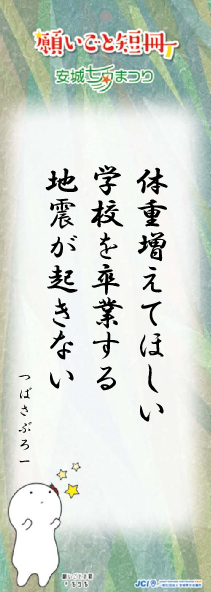 願いごと短冊
安城七夕まつり
体重増えてほしい
学校を卒業する
地震が起きない
つばさぶろー
JCI